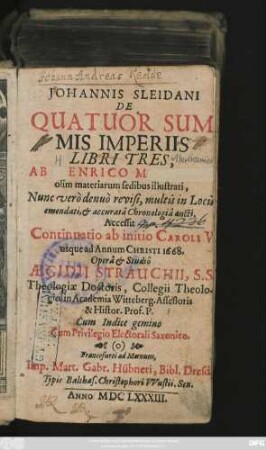 Johann Andreas
JOHANNIS SLEIDANI
DE
QUATUOR SUM
MIS IMPERIIS
LIBRI TRES,
AB ENRICO M
olim materiarum sedibus illustrati,
Nunc verò denuò revisi, multis in Locis
emendati, & accuratâ Chronologiâ aucti,
Accessit
Continuatio ab initio CAROLI V
usque ad Annum CHRISTI 1668.
Operâ & Studiô
ÆGIDII STRAUCHII, S.S.
Theologiæ Doctoris, Collegii Theolo-
gici in Academia Witteberg. Assessoris
& Histor. Prof. P.
Cum Indice gemino
Cum Privilegio Electorali Saxonico.
(o)
Francofurti ad Mœnum,
Imp. Mart. Gabr. Hübneri, Bibl. Dresd.
Typis Balthas. Christophori VVustii, Sen.
ANNO MDC LXXXIII.